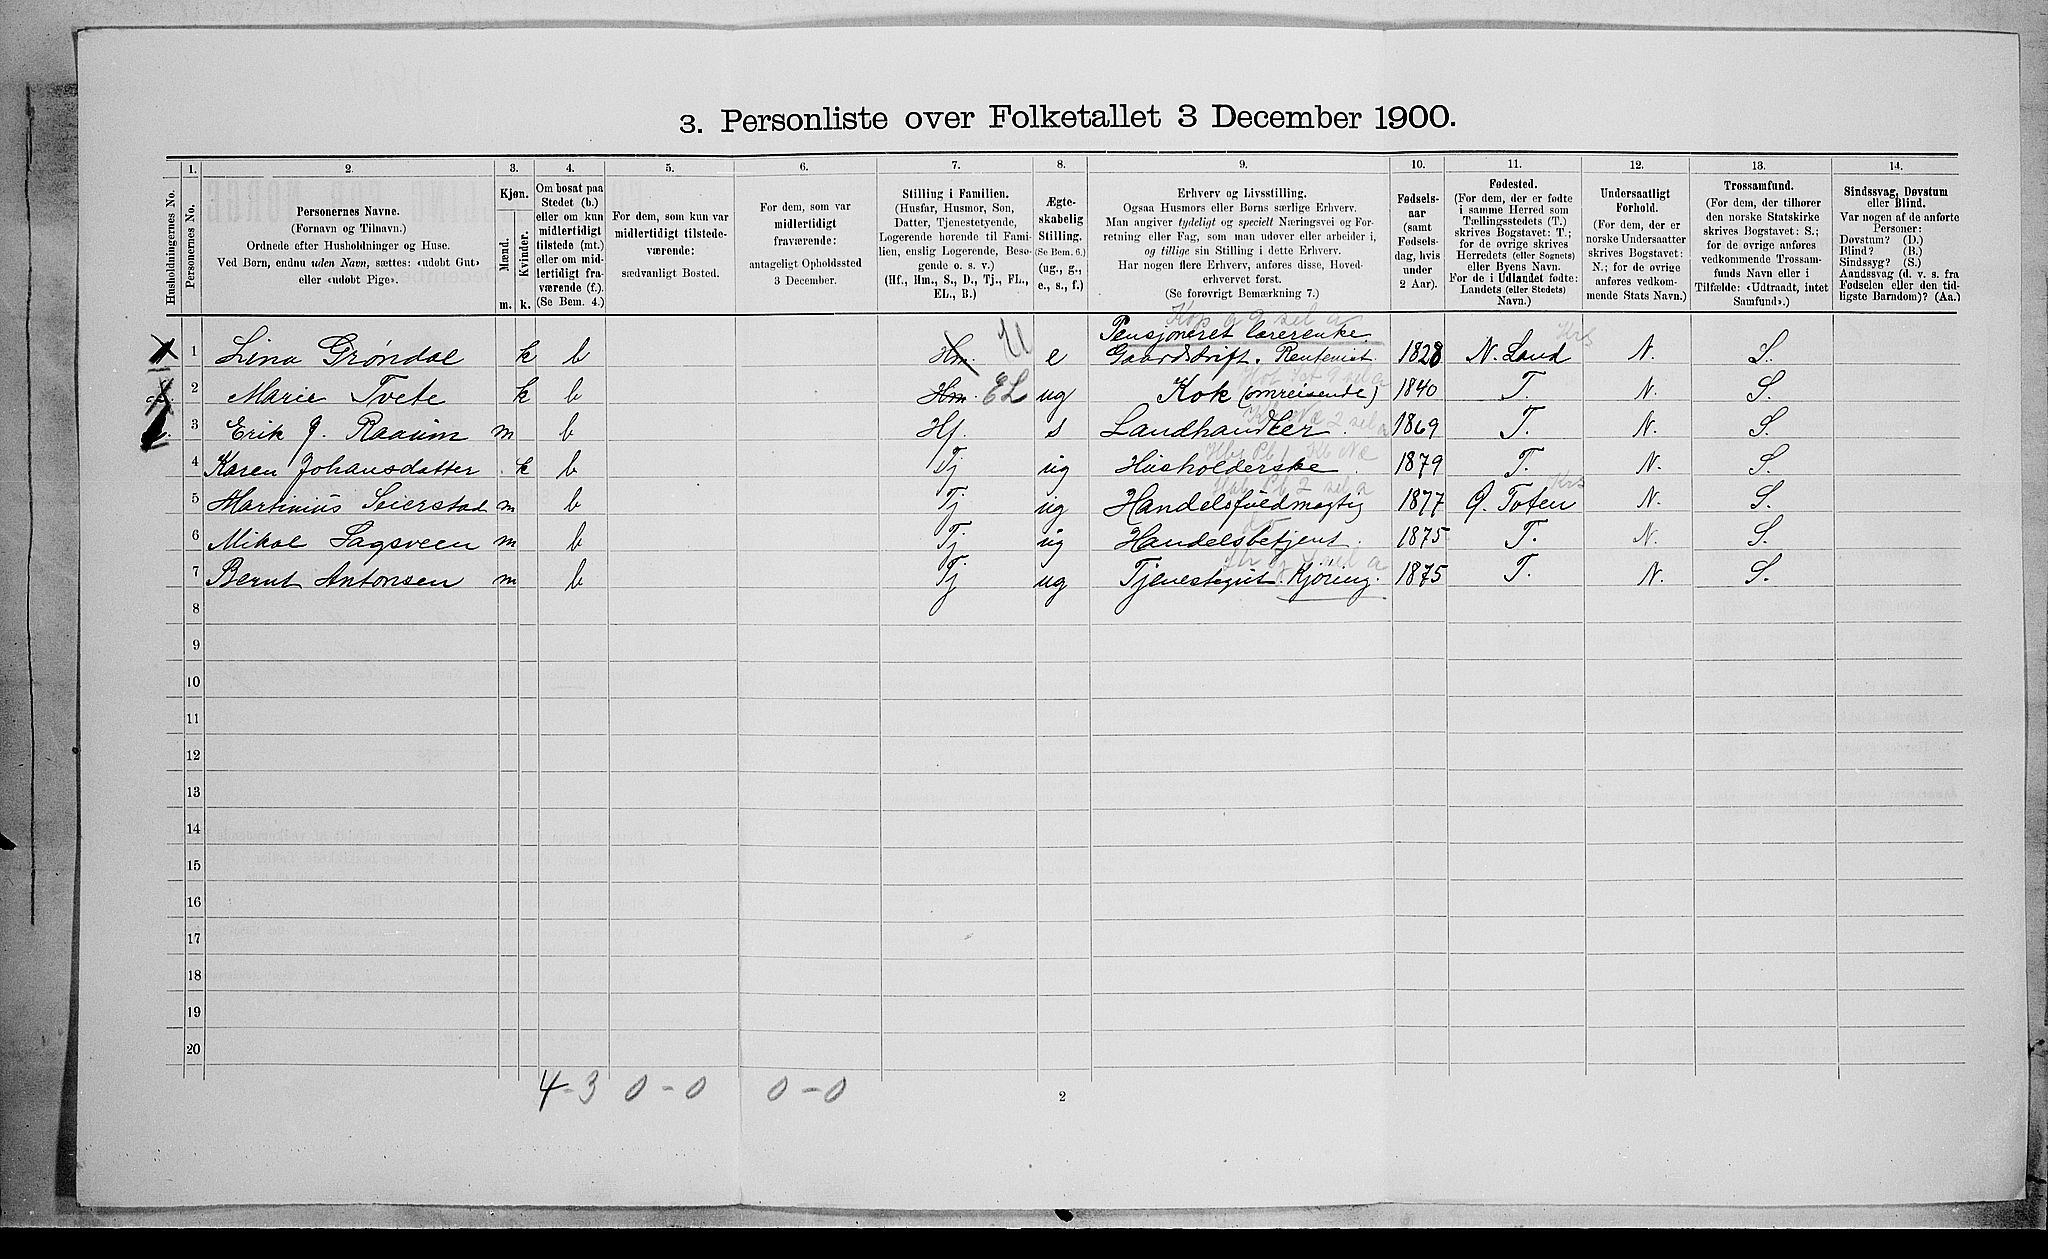 3. Personliste over Folketallet 3 December 1900.
1. 2. 3. 4. 5. 6. 7. 8. 9. 10. 11. 12. 13. 14.
Husholdningernes No.
Personernes No.
Personernes Navne.
(Fornavn og Tilnavn.)
Ordnede efter Husholdninger og Huse.
Ved Børn, endnu uden Navn, sættes: «udøbt Gut»
eller «udøbt Pige».
Kjøn.
Mænd.
Kvinder.
m. k.
Om bosat paa
Stedet (b.)
eller om kun
midlertidigt
tilstede (mt.)
eller om mid-
lertidigt fra-
værende (f.).
(Se Bem. 4.)
For dem, som kun var
midlertidigt tilstede-
værende:
sædvanligt Bosted.
For dem, som var
midlertidigt
fraværende:
antageligt Opholdssted
3 December.
Stilling i Familien.
(Husfar, Husmor, Søn,
Datter, Tjenestetyende,
Logerende hørende til Fami-
lien, enslig Logerende, Besø-
gende o. s. v.)
(Hf., Hm., S., D., Tj., FL.,
EL., B.)
Ægte-
skabelig
Stilling.
(Se Bem. 6.)
(ug., g.,
e., s., f.)
Erhverv og Livsstilling.
Ogsaa Husmors eller Børns særlige Erhverv.
Man angiver tydeligt og specielt Næringsvei og For-
retning eller Fag, som man udøver eller arbeider i,
og tillige sin Stilling i dette Erhverv.
Har nogen flere Erhverv, anføres disse, Hoved-
erhvervet først.
(Se forøvrigt Bemærkning 7.)
Fødsels-
aar
(samt
Fødsels-
dag, hvis
under
2 Aar).
Fødested.
(For dem, der er fødte
i samme Herred som
Tællingsstedets (T.)
skrives Bogstavet: T.;
for de øvrige skrives
Herredets (eller Sognets)
eller Byens Navn.
For de i Udlandet fødte:
Landets (eller Stedets)
Navn.)
Undersaatligt
Forhold.
(For dem, der er
norske Undersaatter
skrives Bogstavet:
N.; for de øvrige
anføres vedkom-
mende Stats Navn.)
Trossamfund.
(For dem, der tilhører
den norske Statskirke
skrives Bogstavet: S.;
for de øvrige anføres
vedkommende Trossam-
funds Navn eller i
Tilfælde: «Udtraadt, intet
Samfund».)
Sindssvag, Døvstum
eller Blind.
Var nogen af de anførte
Personer:
Døvstum? (D.)
Blind? (B.)
Sindssyg? (S.)
Aandssvag (d. v. s. fra
Fødselen eller den tid-
ligste Barndom)? (Aa.)
Pensjoneret lærerenke.
1 Lina Grøndal k b Hm. e Gaardsdrift. Rentenist. 1828 N. Land N. S.
2 Marie Tvete k b Hm. EL ug Kok (omreisende) 1840 T. N. S.
3 Erik J. Raaum m b Hf. s Landhandler. 1869 T. N. S.
4 Karen Johansdatter k b Tj ug Husholderske. 1879 T. N. S.
5 Martinius Seierstad m b Tj ug Handelsfuldmægtig 1877 Ø. Toten N. S.
6 Mikal Sagsveen m b Tj ug Handelsbetjent. 1875 T. N. S.
7 Bernt Antonsen m b Tj ug Tjenestegut. Kjöring. 1875 T. N. S.
8
9
10
11
12
13
14
15
16
17
18
19
20
4-3 0-0 0-0
2